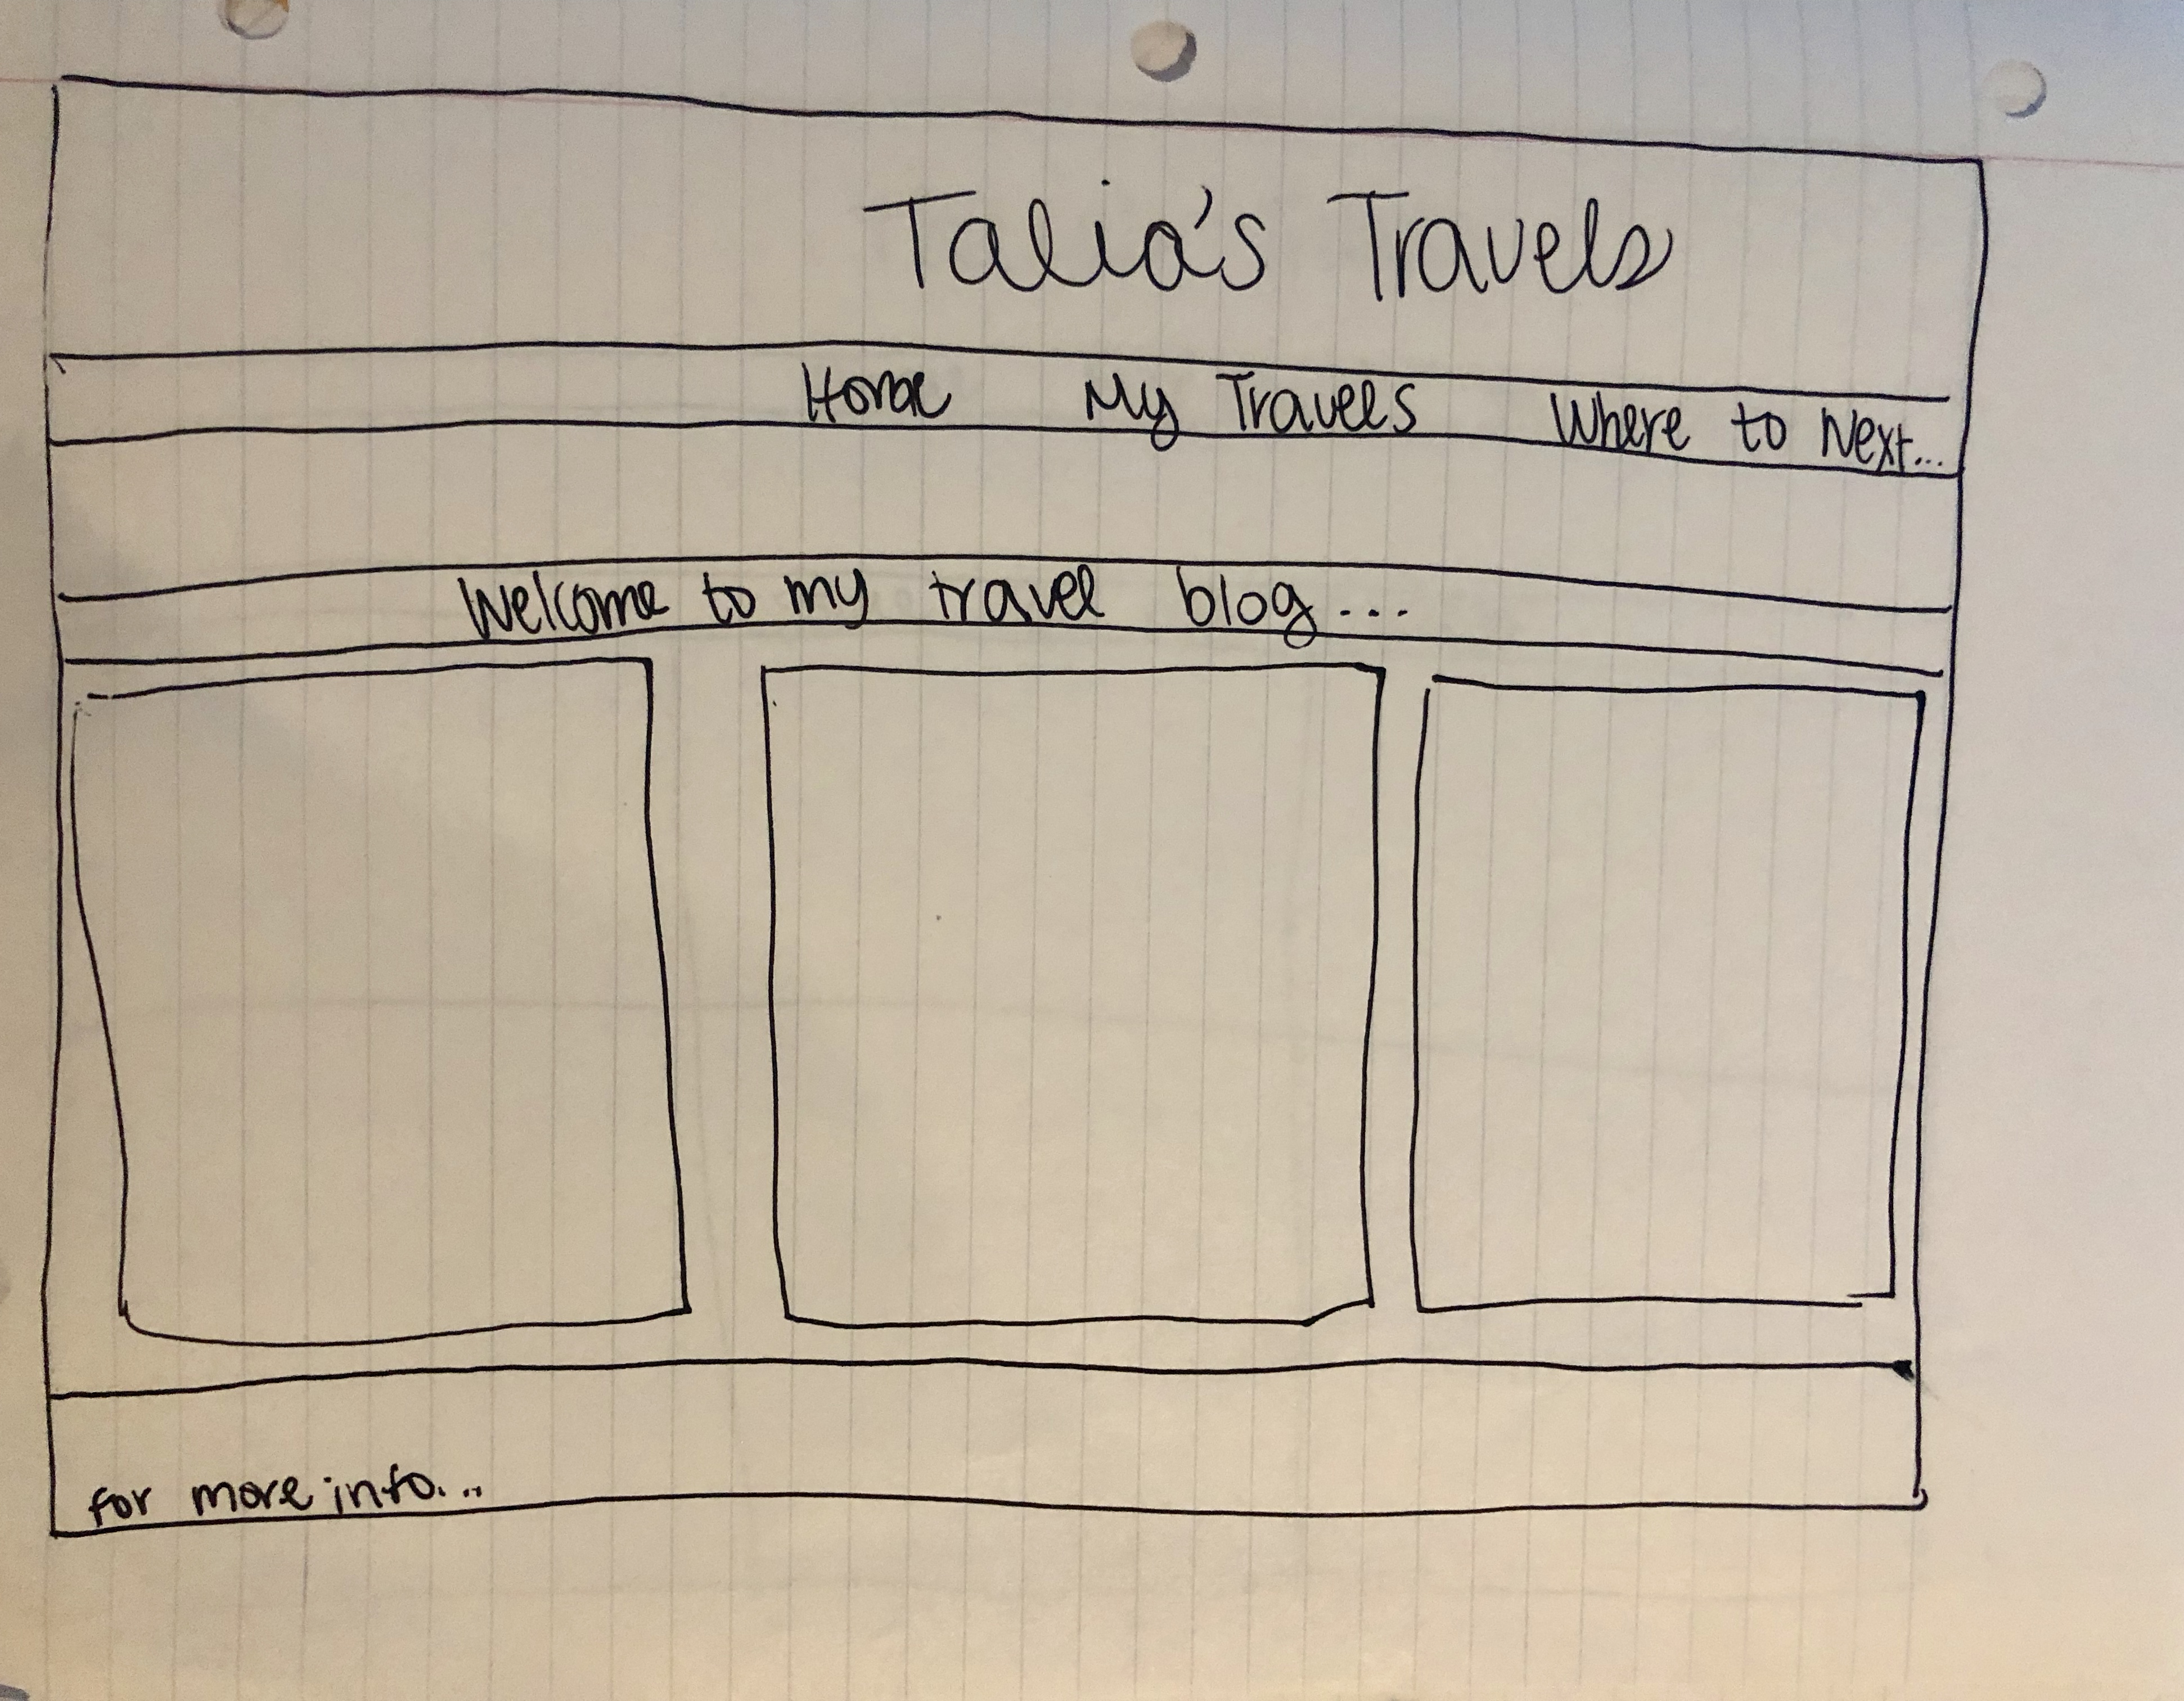 Talia's Travels
Home My Travels Where to Next...
Welcome to my travel blog...
for more info...